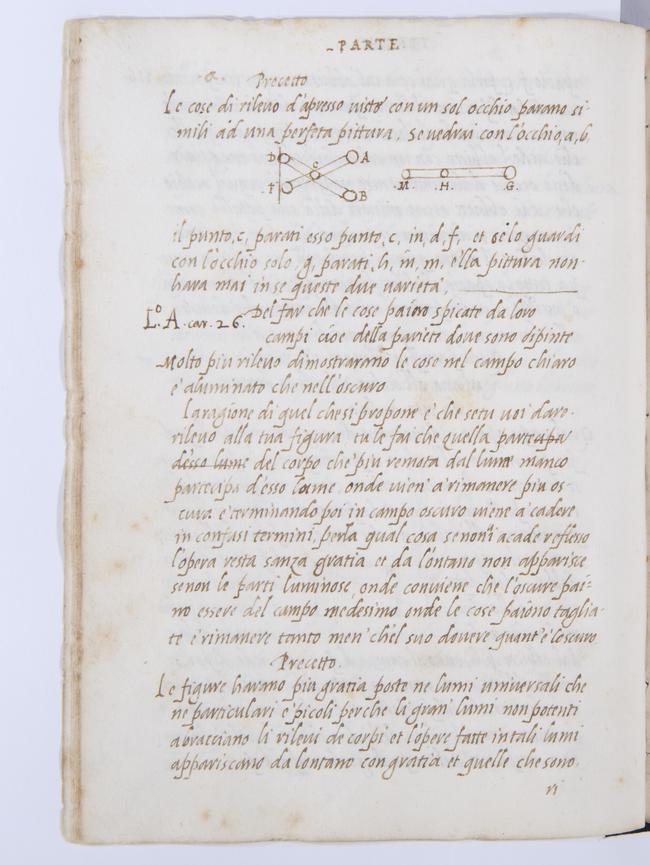 PARTE
Precetto
Le cose di rilevo d'apresso viste con un sol occhio parano si-
mili ad una perfeta pittura, se vedrai con l'occhio, a, b,
D C A
F B
M H. G.
il punto, c, parati esso punto, c, in, d, f, et se lo guardi
con l'occhio solo, g, parati, h, in, m, e lla pittura non
hara mai in se queste due varieta,
Lo. A. car. 26. Del far che le cose paiono spicate da loro
campi cioe della pariete dove sono dipinte
Molto piu rilevo dimostrarano le cose nel campo chiaro
e' aluminato che nell'oscuro
La ragione di quel che si propone e' che se tu voi dare
rilevo alla tua figura tu le fai che quella partecipa
desso lume del corpo che piu remota dal lume manco
partecipa d'esso lume, onde vien' a rimanere piu os-
cura e' terminando poi in campo oscuro viene a' cadere
in confusi termini, perla qual cosa se non vi acade reflesso
l'opera resta sanza gratia et da lontano non apparisce
se non le parti luminose, onde conviene che l'oscure pai=
no essere del campo medesimo onde le cose paiono taglia-
te e' rimanere tanto men' ch'el suo dovere quant'e' l'oscuro
Precetto.
Le figure harano piu gratia poste ne lumi universali che
ne particulari e' picoli perche li gran' lumi non potenti
abracciano li rilevi de corpi et l'opere fatte in tali lumi
appariscano da lontano con gratia et quelle che sono